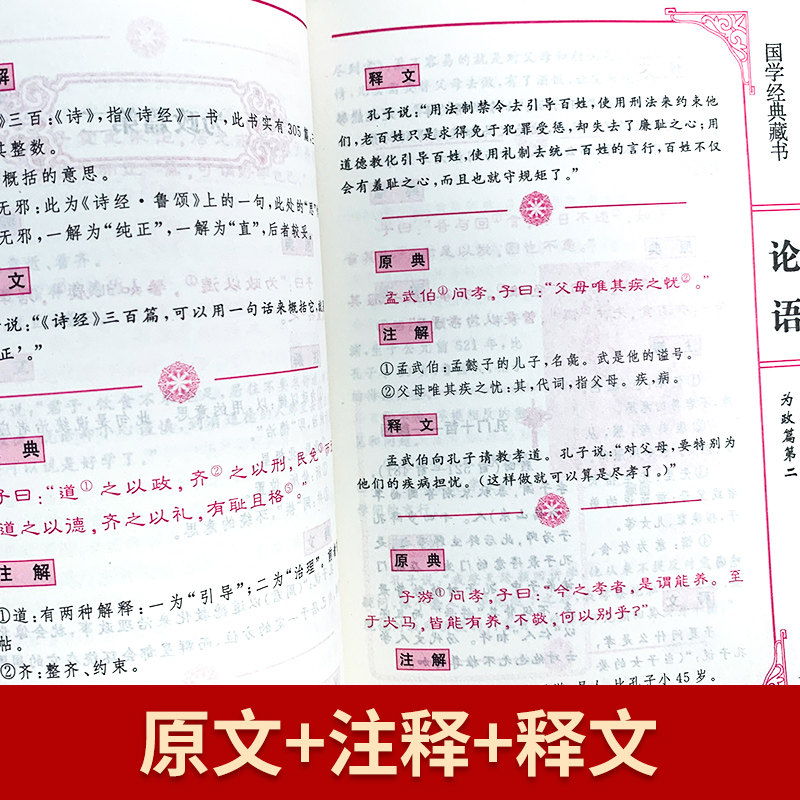 解
》三百:《诗》,指《诗经》一书,此书实有305篇,三
其整数。
概括的意思。
无邪:此为《诗经·鲁颂》上的一句,此处的“思”
无邪,一解为“纯正”,一解为“直”,后者较妥。
文
说:“《诗经》三百篇,可以用一句话来概括它,
正’。”
典
子曰:“道①之以政,齐②之以刑,民免③而
道之以德,齐之以礼,有耻且格⑤。”
注解
①道:有两种解释:一为“引导”;二为“治理”。
帖。
②齐:整齐、约束。
释文
孔子说:“用法制禁令去引导百姓,使用刑法来约束他
们,老百姓只是求得免于犯罪受惩,却失去了廉耻之心;用
道德教化引导百姓,使用礼制去统一百姓的言行,百姓不仅
会有羞耻之心,而且也就守规矩了。”
原典
孟武伯①问孝,子曰:“父母唯其疾之忧②。”
注解
①孟武伯:孟懿子的儿子,名彘。武是他的谥号。
②父母唯其疾之忧:其,代词,指父母。疾,病。
释文
孟武伯向孔子请教孝道。孔子说:“对父母,要特别为
他们的疾病担忧。(这样做就可以算是尽孝了。)”
原典
子游①问孝,子曰:“今之孝者,是谓能养。至
于犬马,皆能有养,不敬,何以别乎?”
注解
比孔子小45岁。
国学经典藏书
论语
为政篇第二
原文+注释+释文